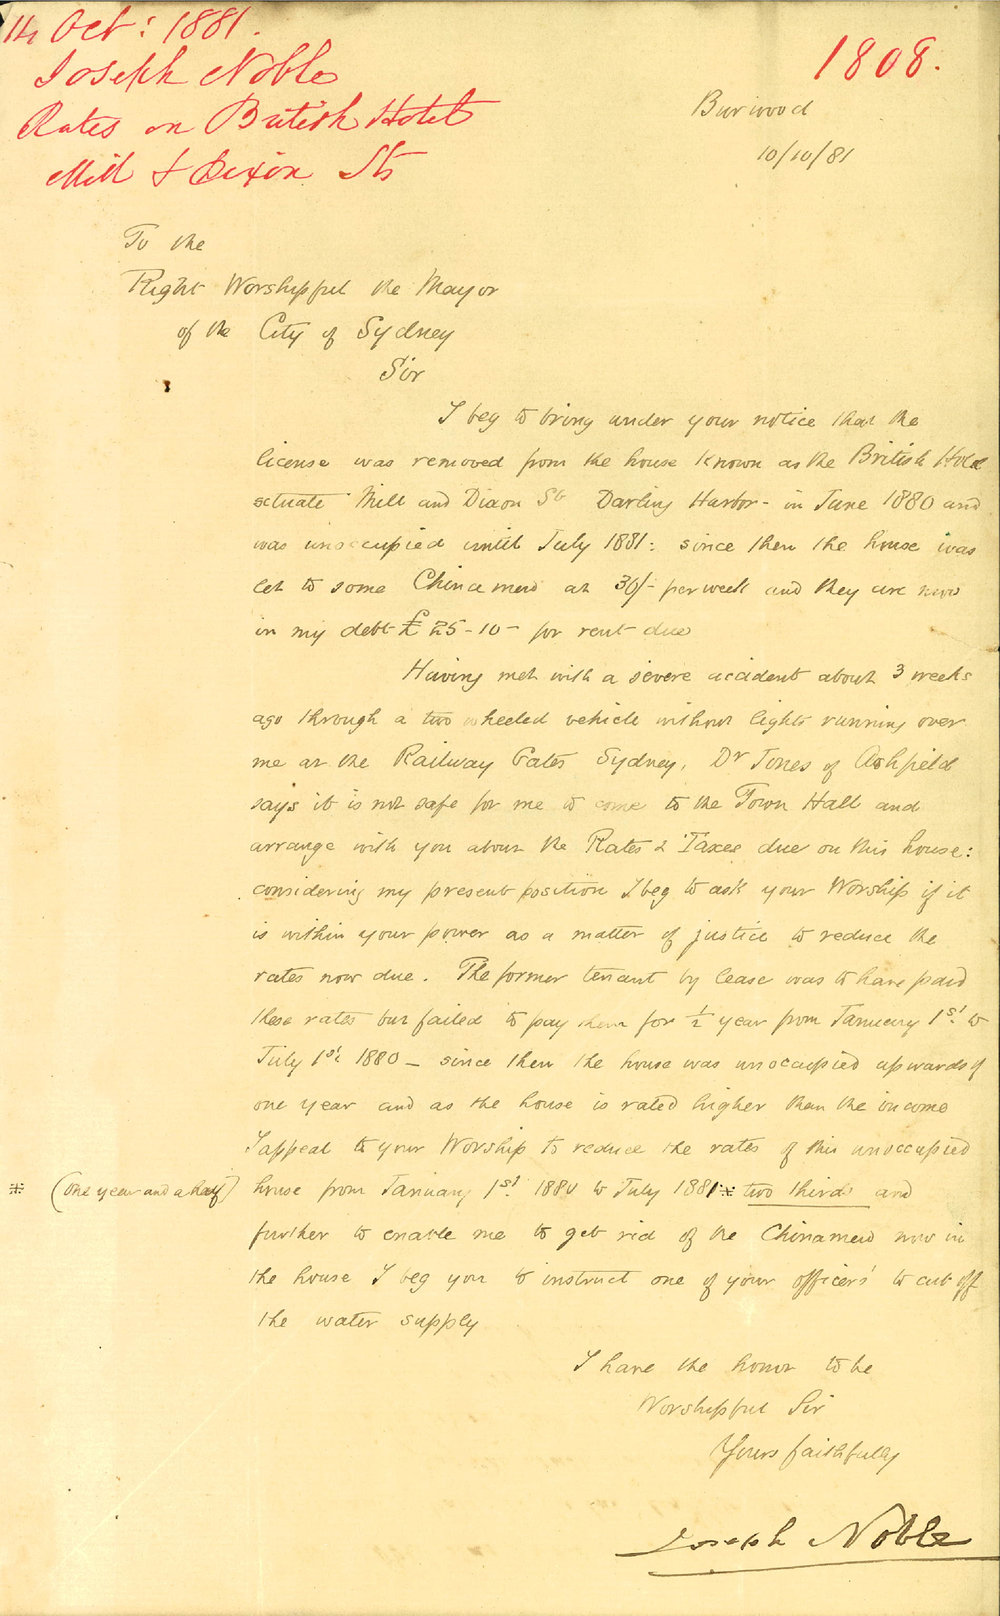 14 Oct: 1881.
Joseph Noble
Rates on British Hotel
Mill & Dixon Sts
1808.
Burwood
10/10/81
To the
Right Worshipful the Mayor
of the City of Sydney
Sir
I beg to bring under your notice that the
license was removed from the house known as the British Hotel
situate Mill and Dixon St Darling Harbor - in June 1880 and
was unoccupied until July 1881: since then the house was
let to some Chinamen at 30/- per week and they are now
in my debt £25-10- for rent due
Having met with a severe accident about 3 weeks
ago through a two wheeled vehicle without lights running over
me at the Railway Gates Sydney, Dr Jones of Ashfield
says it is not safe for me to come to the Town Hall and
arrange with you about the Rates & Taxes due on this house:
considering my present position I beg to ask your Worship if it
is within your power as a matter of justice to reduce the
rates now due. The former tenant by lease was to have paid
these rates but failed to pay them for ½ year from January 1st to
July 1st 1880 - since then the house was unoccupied upwards of
one year and as the house is rated higher than the income
I appeal to your Worship to reduce the rates of this unoccupied
※ (one year and a half) house from January 1st 1880 to July 1881 ※ two thirds and
further to enable me to get rid of the Chinamen now in
the house I beg you to instruct one of your officers to cut off
the water supply
I have the honor to be
Worshipful Sir
Yours faithfully
Joseph Noble